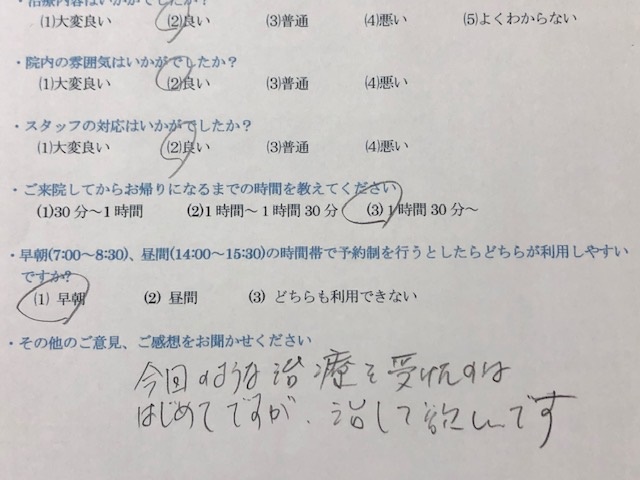 ・治療内容はいかがでしたか?
(1)大変良い (2)良い (3)普通 (4)悪い (5)よくわからない
・院内の雰囲気はいかがでしたか?
(1)大変良い (2)良い (3)普通 (4)悪い
・スタッフの対応はいかがでしたか?
(1)大変良い (2)良い (3)普通 (4)悪い
・ご来院してからお帰りになるまでの時間を教えてください
(1)30分〜1時間 (2)1時間〜1時間30分 (3)1時間30分〜
・早朝(7:00〜8:30)、昼間(14:00〜15:30)の時間帯で予約制を行うとしたらどちらが利用しやすい
ですか?
(1) 早朝 (2) 昼間 (3) どちらも利用できない
・その他のご意見、ご感想をお聞かせください
今回のような治療を受けたのは
はじめてですが、治して欲しいです